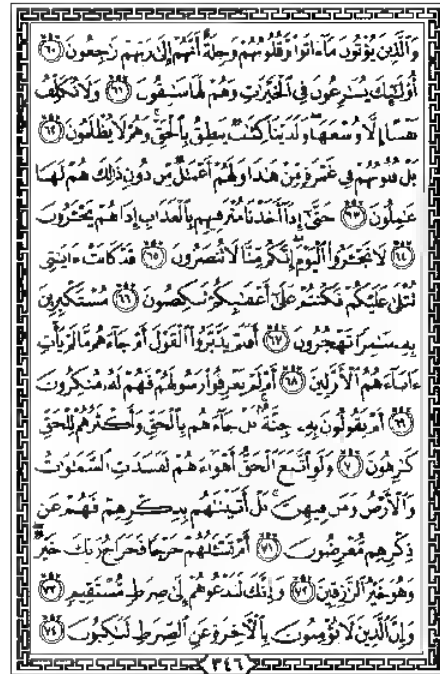 وَالَّذِينَ يُؤْتُونَ مَا ءَاتَوا وَّقُلُوبُهُمْ وَجِلَةٌ أَنَّهُمْ إِلَىٰ رَبِّهِمْ رَٰجِعُونَ ۝٦٠
أُوْلَٰٓئِكَ يُسَٰرِعُونَ فِي الْخَيْرَٰتِ وَهُمْ لَهَا سَٰبِقُونَ ۝٦١ وَلَا نُكَلِّفُ
نَفْسًا إِلَّا وُسْعَهَا وَلَدَيْنَا كِتَٰبٌ يَنطِقُ بِالْحَقِّ وَهُمْ لَا يُظْلَمُونَ ۝٦٢
بَلْ قُلُوبُهُمْ فِي غَمْرَةٍ مِّنْ هَٰذَا وَلَهُمْ أَعْمَٰلٌ مِّن دُونِ ذَٰلِكَ هُمْ لَهَا
عَٰمِلُونَ ۝٦٣ حَتَّىٰٓ إِذَآ أَخَذْنَا مُتْرَفِيهِم بِالْعَذَابِ إِذَا هُمْ يَجْـَٔرُونَ
۝٦٤ لَا تَجْـَٔرُوا الْيَوْمَ إِنَّكُم مِّنَّا لَا تُنصَرُونَ ۝٦٥ قَدْ كَانَتْ ءَايَٰتِي
تُتْلَىٰ عَلَيْكُمْ فَكُنتُمْ عَلَىٰٓ أَعْقَٰبِكُمْ تَنكِصُونَ ۝٦٦ مُسْتَكْبِرِينَ
بِهِۦ سَٰمِرًا تَهْجُرُونَ ۝٦٧ أَفَلَمْ يَدَّبَّرُوا الْقَوْلَ أَمْ جَآءَهُم مَّا لَمْ يَأْتِ
ءَابَآءَهُمُ الْأَوَّلِينَ ۝٦٨ أَمْ لَمْ يَعْرِفُوا رَسُولَهُمْ فَهُمْ لَهُۥ مُنكِرُونَ
۝٦٩ أَمْ يَقُولُونَ بِهِۦ جِنَّةٌۢ بَلْ جَآءَهُم بِالْحَقِّ وَأَكْثَرُهُمْ لِلْحَقِّ
كَٰرِهُونَ ۝٧٠ وَلَوِ اتَّبَعَ الْحَقُّ أَهْوَآءَهُمْ لَفَسَدَتِ السَّمَٰوَٰتُ
وَالْأَرْضُ وَمَن فِيهِنَّ بَلْ أَتَيْنَٰهُم بِذِكْرِهِمْ فَهُمْ عَن
ذِكْرِهِم مُّعْرِضُونَ ۝٧١ أَمْ تَسْـَٔلُهُمْ خَرْجًا فَخَرَاجُ رَبِّكَ خَيْرٌ
وَهُوَ خَيْرُ الرَّٰزِقِينَ ۝٧٢ وَإِنَّكَ لَتَدْعُوهُمْ إِلَىٰ صِرَٰطٍ مُّسْتَقِيمٍ ۝٧٣
وَإِنَّ الَّذِينَ لَا يُؤْمِنُونَ بِالْءَاخِرَةِ عَنِ الصِّرَٰطِ لَنَٰكِبُونَ ۝٧٤
٣٤٦